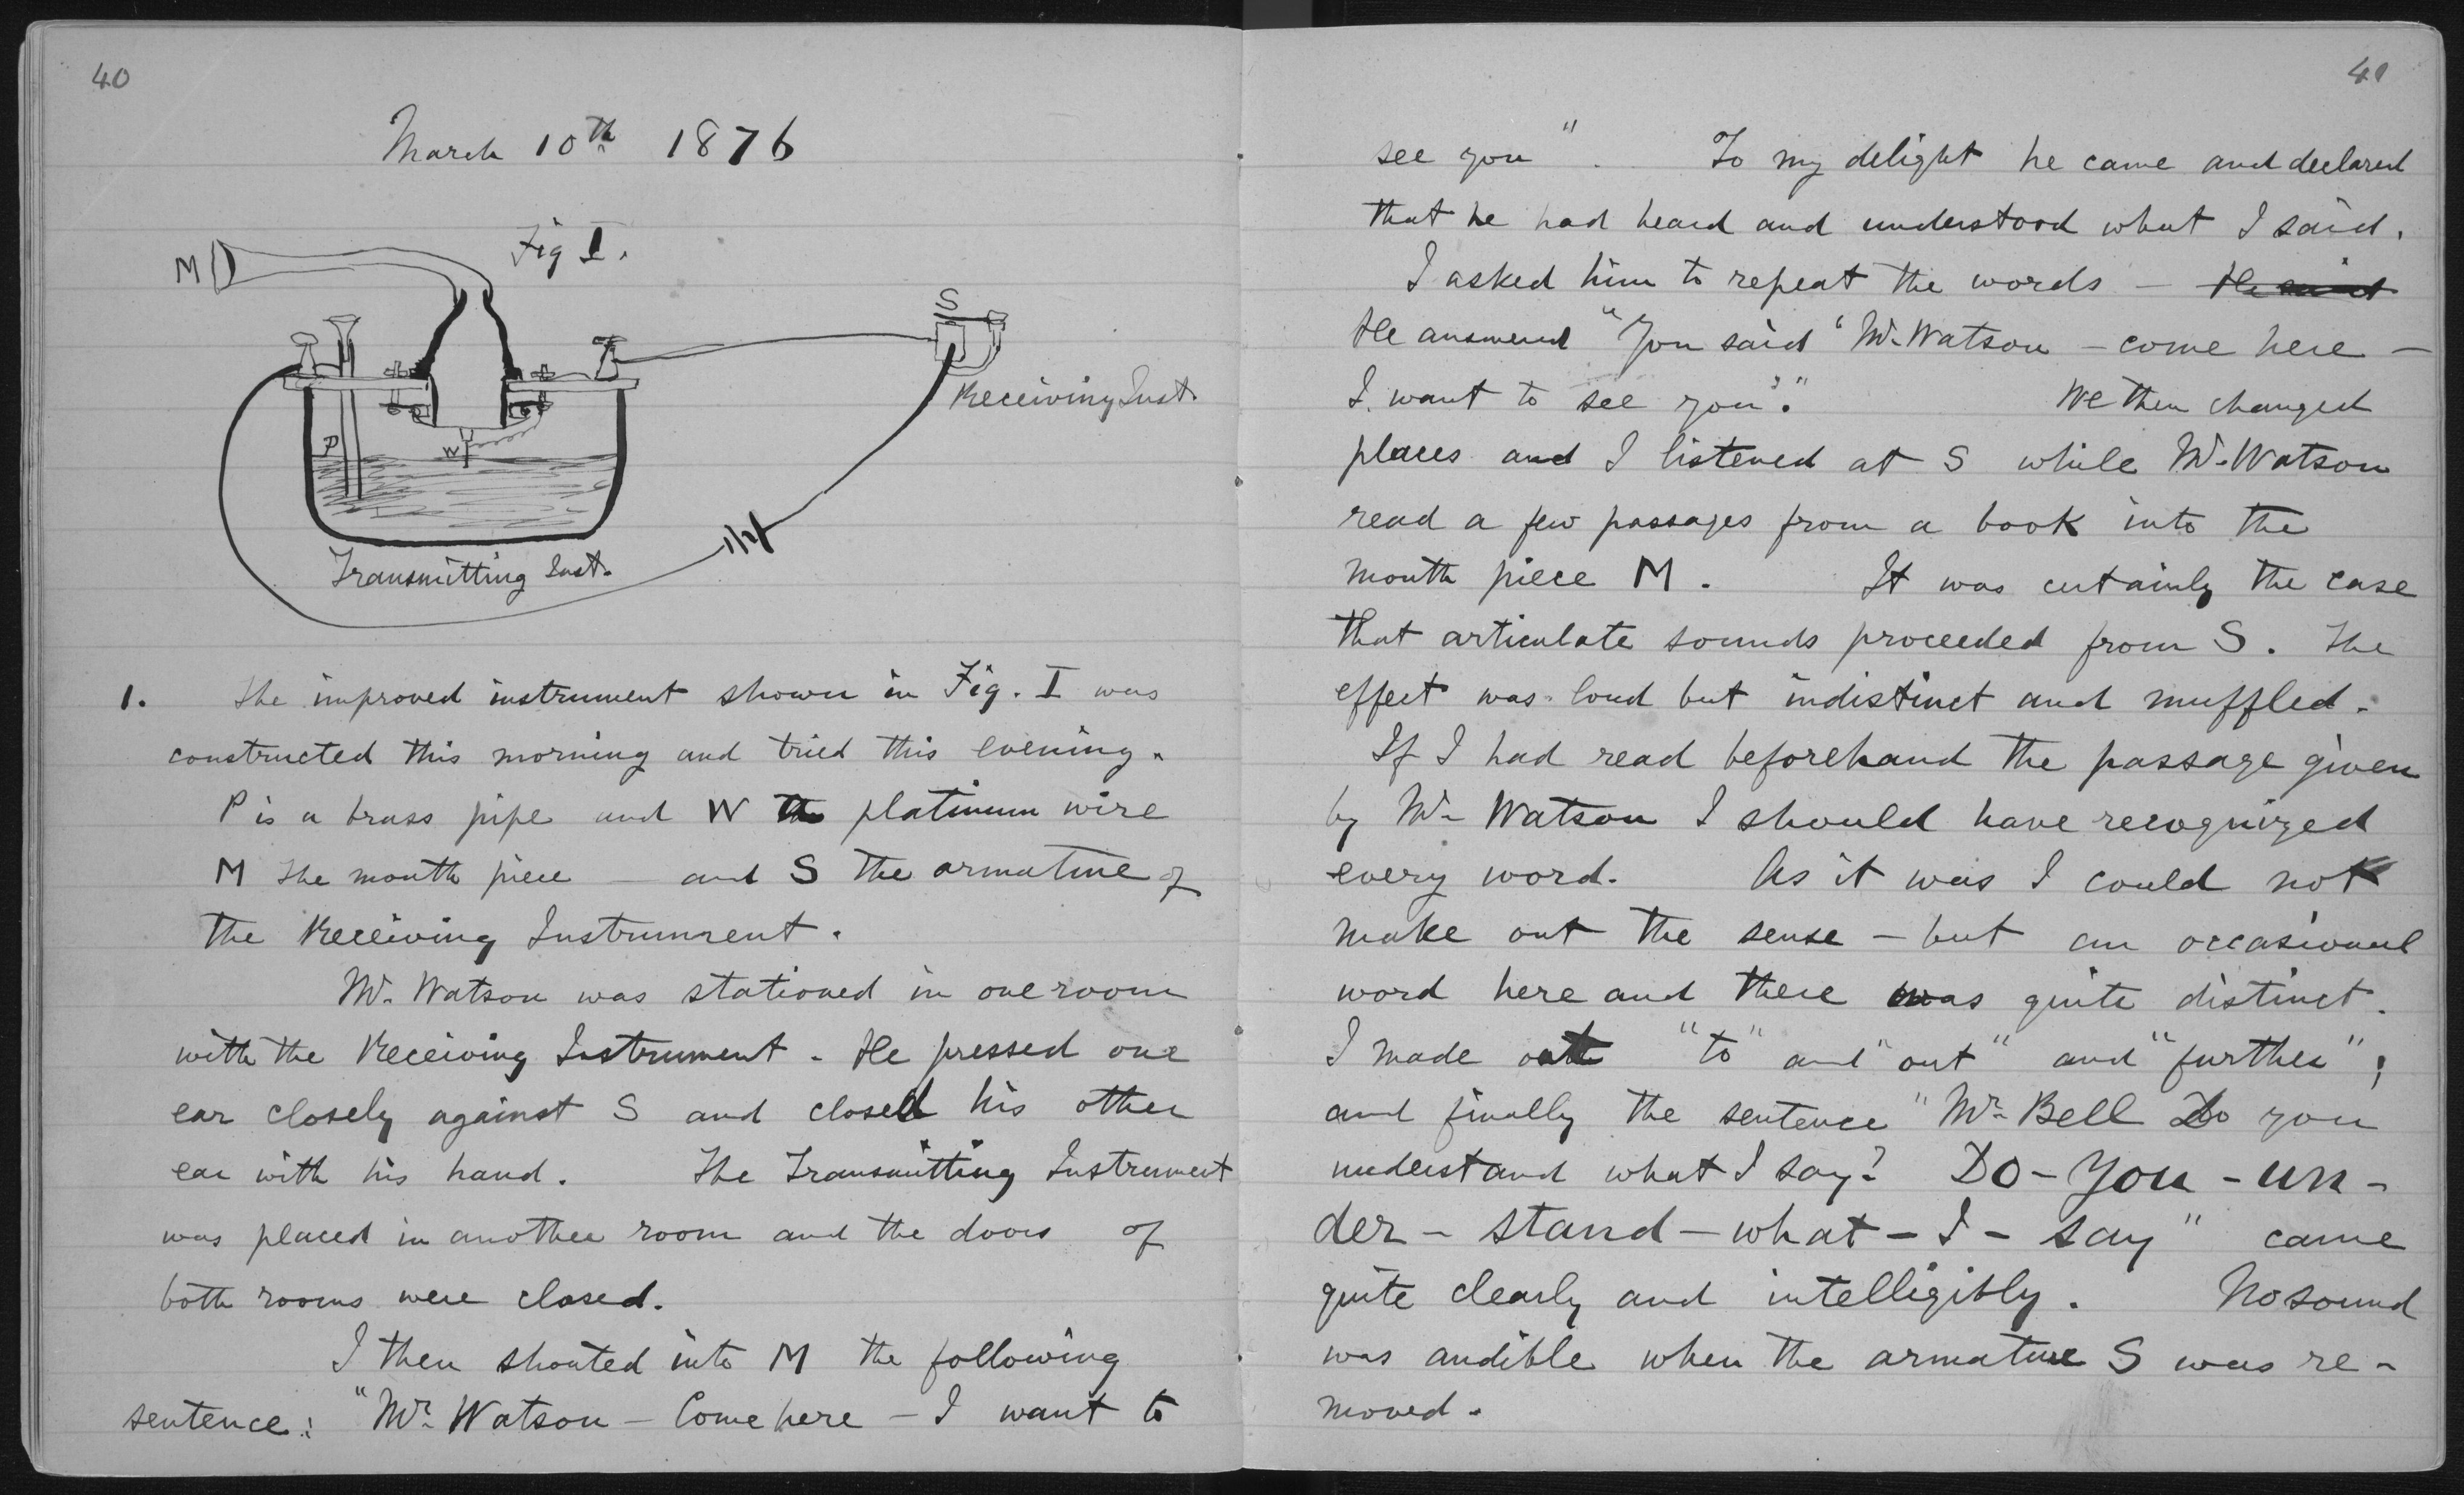 40
March 10th 1876
Fig I.
M
S
Receiving Inst.
P
W
Transmitting Inst.
1. The improved instrument shown in Fig. I was
constructed this morning and tried this evening.
P is a brass pipe and W the platinum wire
M the mouth piece — and S the armature of
the Receiving Instrument.
Mr. Watson was stationed in one room
with the Receiving Instrument. He pressed one
ear closely against S and closed his other
ear with his hand. The Transmitting Instrument
was placed in another room and the doors of
both rooms were closed.
I then shouted into M the following
sentence: "Mr. Watson — Come here — I want to
41
see you". To my delight he came and declared
that he had heard and understood what I said.
I asked him to repeat the words — He said
He answered "You said 'Mr. Watson — come here —
I want to see you'." We then changed
places and I listened at S while Mr. Watson
read a few passages from a book into the
mouth piece M. It was certainly the case
that articulate sounds proceeded from S. The
effect was loud but indistinct and muffled.
If I had read beforehand the passage given
by Mr. Watson I should have recognized
every word. As it was I could not
make out the sense — but an occasional
word here and there was quite distinct.
I made out "to" and "out" and "further";
and finally the sentence "Mr. Bell Do you
understand what I say? Do – you – un –
der – stand – what – I – say" came
quite clearly and intelligibly. No sound
was audible when the armature S was re-
moved.